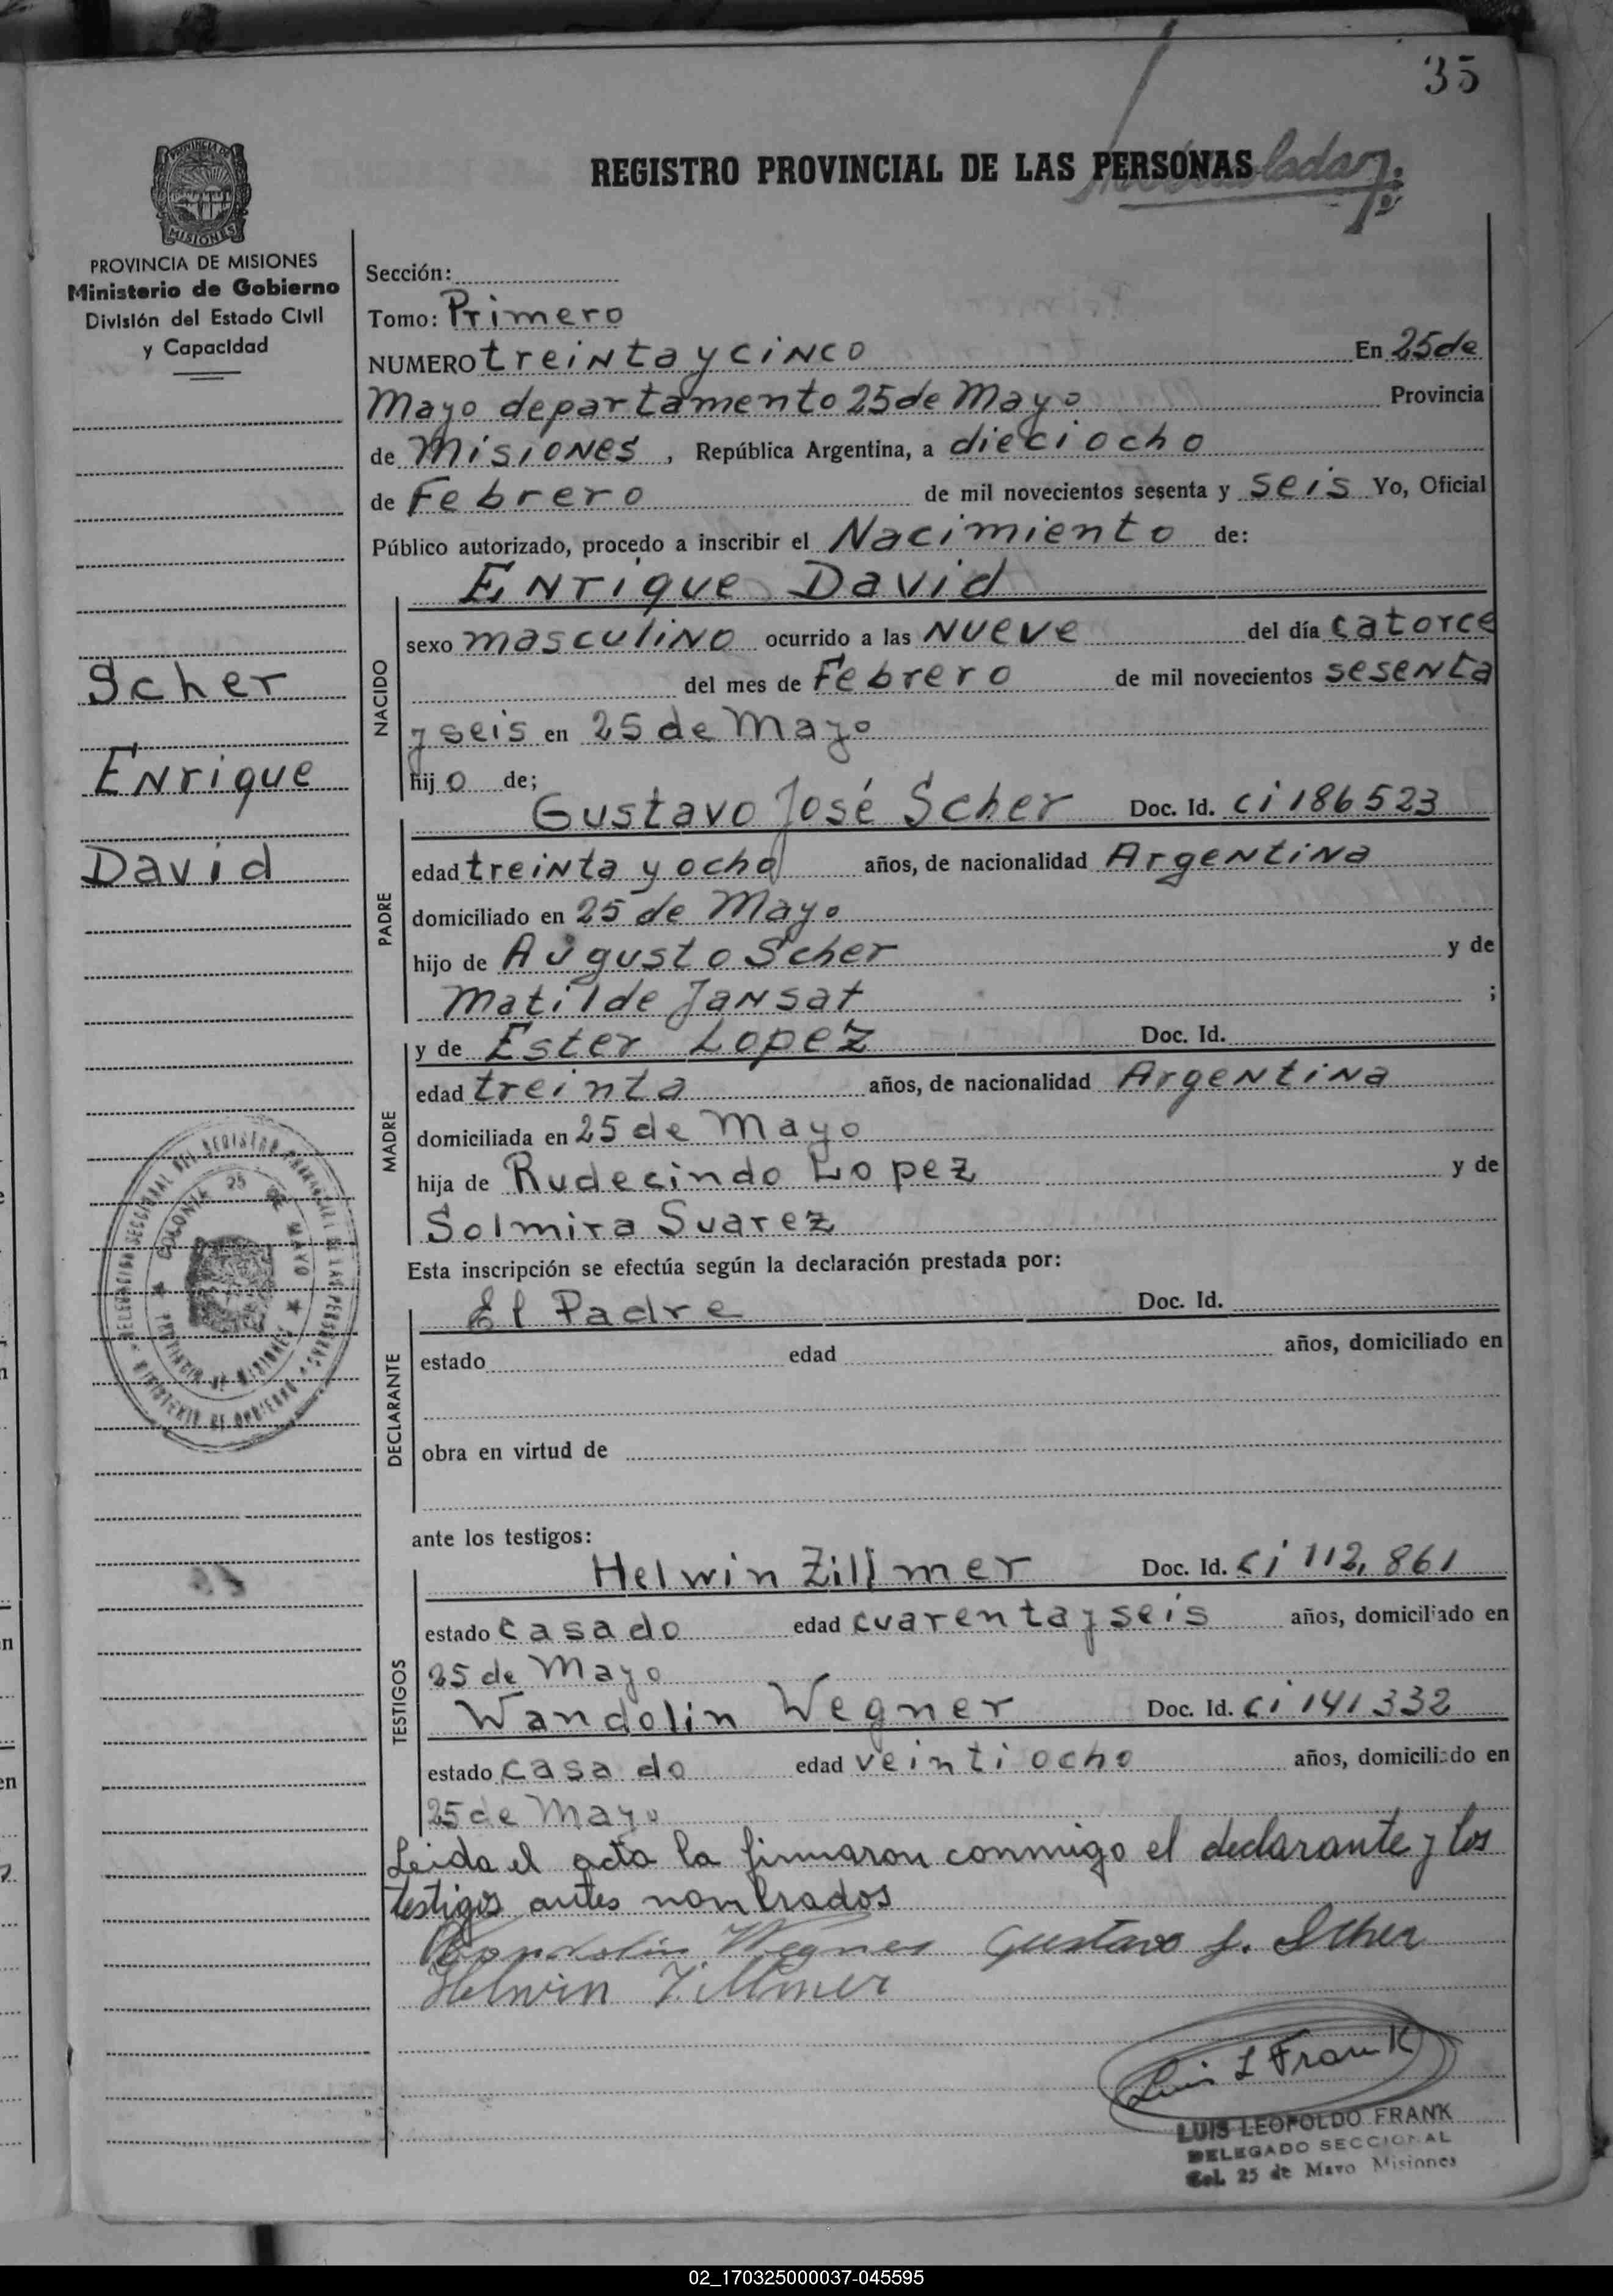 35
REGISTRO PROVINCIAL DE LAS PERSONAS
PROVINCIA DE MISIONES
PROVINCIA DE MISIONES
Ministerio de Gobierno
División del Estado Civil
y Capacidad
Scher
Enrique
David
DELEGACION SECCIONAL DEL REGISTRO PROVINCIAL DE LAS PERSONAS
MINISTERIO DE GOBIERNO
COLONIA 25 DE MAYO
PROVINCIA DE MISIONES
Sección:
Tomo: Primero
NUMERO treinta y cinco En 25 de
Mayo departamento 25 de Mayo Provincia
de Misiones, República Argentina, a dieciocho
de Febrero de mil novecientos sesenta y seis Yo, Oficial
Público autorizado, procedo a inscribir el Nacimiento de:
NACIDO
Enrique David
sexo masculino ocurrido a las nueve del día catorce
del mes de Febrero de mil novecientos sesenta
y seis en 25 de Mayo
hijo de;
PADRE
Gustavo José Scher Doc. Id. ci 186523
edad treinta y ocho años, de nacionalidad Argentina
domiciliado en 25 de Mayo
hijo de Augusto Scher y de
Matilde Jansat ;
MADRE
y de Ester Lopez Doc. Id.
edad treinta años, de nacionalidad Argentina
domiciliada en 25 de Mayo
hija de Rudecindo Lopez y de
Solmira Suarez
Esta inscripción se efectúa según la declaración prestada por:
DECLARANTE
El Padre Doc. Id.
estado edad años, domiciliado en
obra en virtud de
ante los testigos:
TESTIGOS
Helwin Zillmer Doc. Id. ci 112,861
estado casado edad cuarenta y seis años, domiciliado en
25 de Mayo
Wandolin Wegner Doc. Id. ci 141332
estado casado edad veintiocho años, domiciliado en
25 de Mayo
Leida el acta la firmaron conmigo el declarante y los
testigos antes nombrados
Wandolin Wegner Gustavo J. Scher
Helwin Zillmer
Luis L Frank
LUIS LEOPOLDO FRANK
DELEGADO SECCIONAL
Col. 25 de Mayo Misiones
02_170325000037-045595